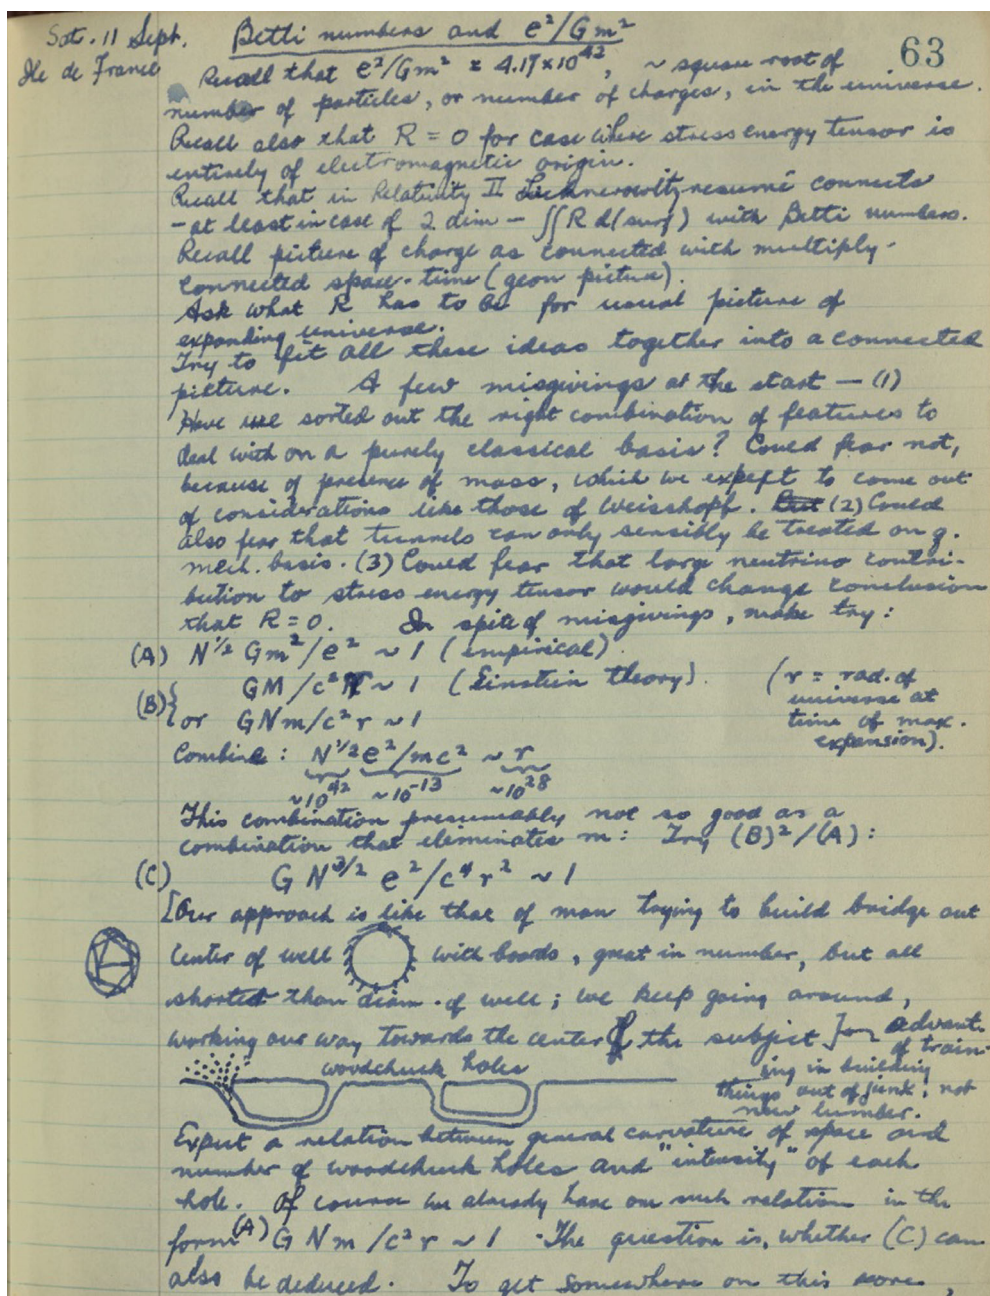 Sat. 11 Sept. Betti numbers and e²/Gm²
63
Ile de France Recall that e²/Gm² = 4.17×10⁴², ~ square root of
number of particles, or number of charges, in the universe.
Recall also that R = 0 for case where stress energy tensor is
entirely of electromagnetic origin.
Recall that in Relativity II Lichnerowitz resumé connects
– at least in case of 2 dim – ∬R d(surf) with Betti numbers.
Recall picture of charge as connected with multiply-
connected space-time (geon picture).
Ask what R has to be for usual picture of
expanding universe.
Try to fit all these ideas together into a connected
picture. A few misgivings at the start — (1)
Have we sorted out the right combination of features to
deal with on a purely classical basis? Could fear not,
because of presence of mass, which we expect to come out
of considerations like those of Weisskopf. But (2) Could
also fear that tunnels can only sensibly be treated on q.
mech. basis. (3) Could fear that large neutrino contri-
bution to stress energy tensor would change conclusion
that R = 0. In spite of misgivings, make try:
(A) N^½ Gm²/e² ~ 1 (empirical)
(B){ GM/c²r ~ 1 (Einstein theory). (r = rad. of
universe at
or GNm/c²r ~ 1 time of max.
expansion).
Combine: N^½ e²/mc² ~ r
~10⁴² ~10⁻¹³ ~10²⁸
This combination presumably not so good as a
combination that eliminates m: Try (B)²/(A):
(C) G N^3/2 e²/c⁴ r² ~ 1
[Our approach is like that of man trying to build bridge out
center of well with boards, great in number, but all
shorter than diam. of well; we keep going around,
working our way towards the center of the subject } advant.
of train-
woodchuck holes ing in building
things out of junk, not
new lumber.
Expect a relation between general curvature of space and
number of woodchuck holes and "intensity" of each
hole. Of course we already have one such relation in the
form (A) G N m /c² r ~ 1 . The question is, whether (C) can
also be deduced. To get somewhere on this score,